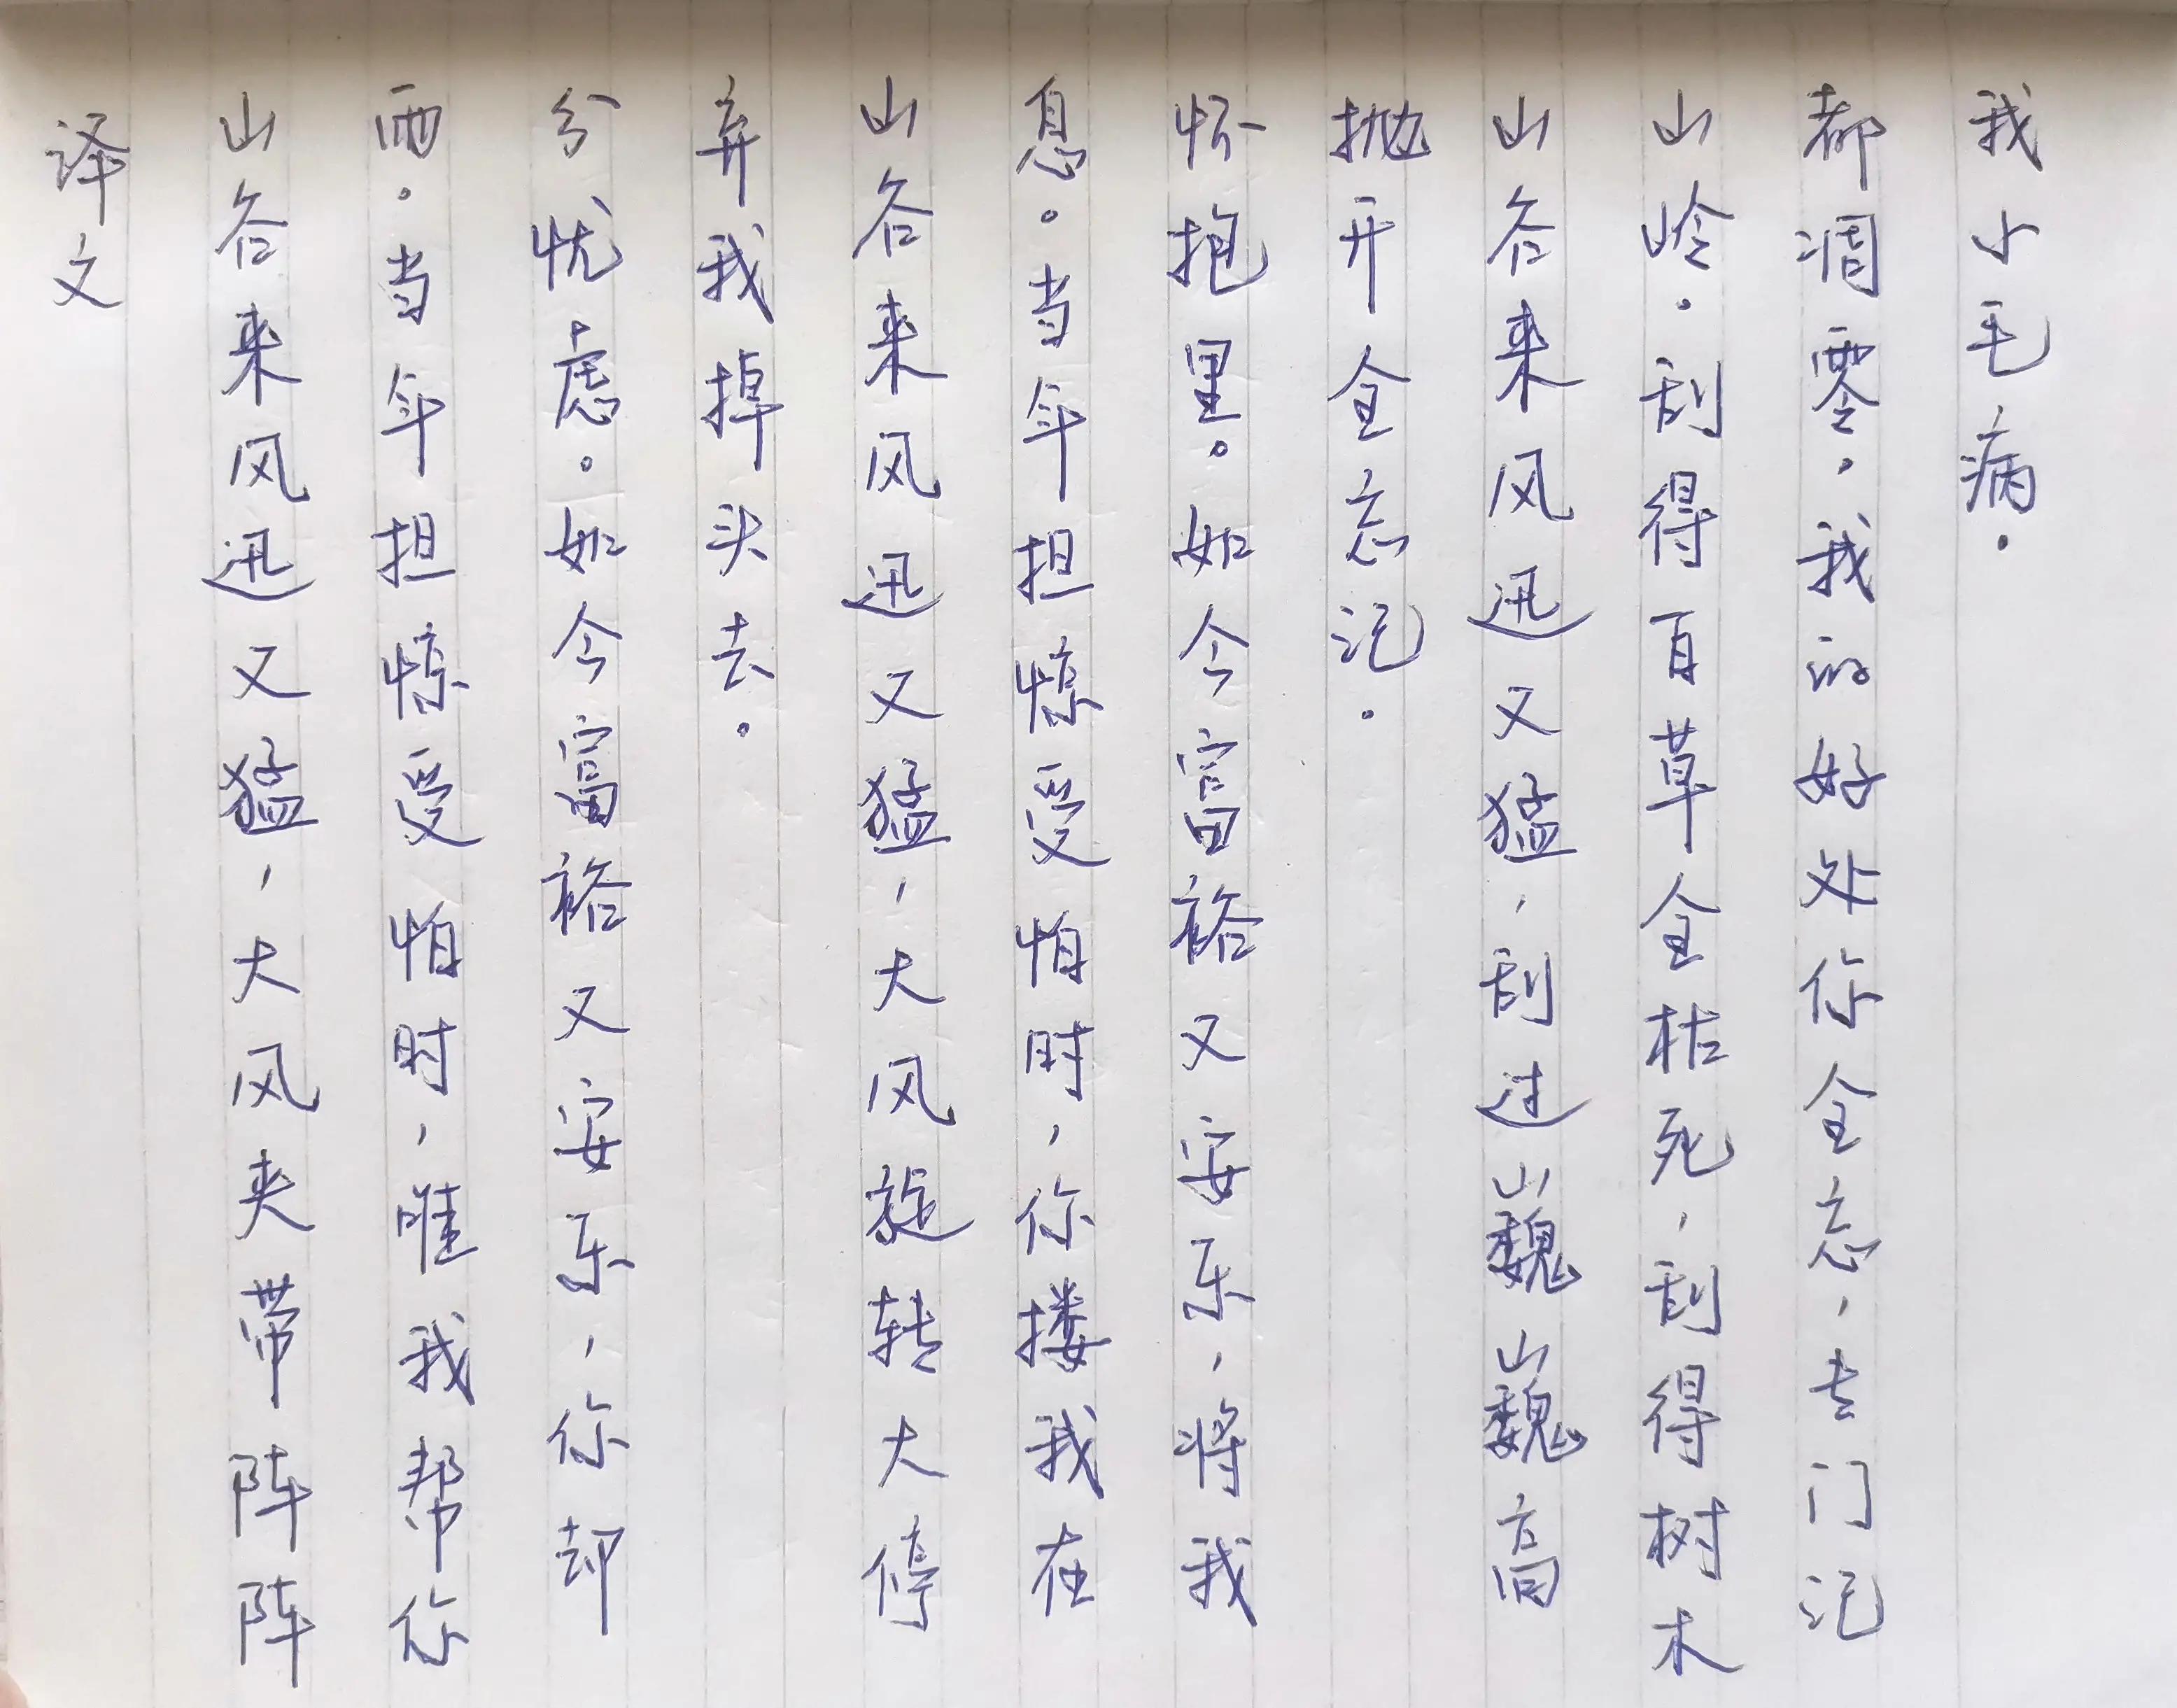 译文
山谷来风迅又猛，大风夹带阵阵
雨。当年担惊受怕时，唯我帮你
分忧虑。如今富裕又安乐，你却
弃我掉头去。
山谷来风迅又猛，大风旋转大停
息。当年担惊受怕时，你搂我在
怀抱里。如今富裕又安乐，将我
抛开全忘记。
山谷来风迅又猛，刮过巍巍高
山岭。刮得百草全枯死，刮得树木
都凋零。我的好处你全忘，专门记
我小毛病。